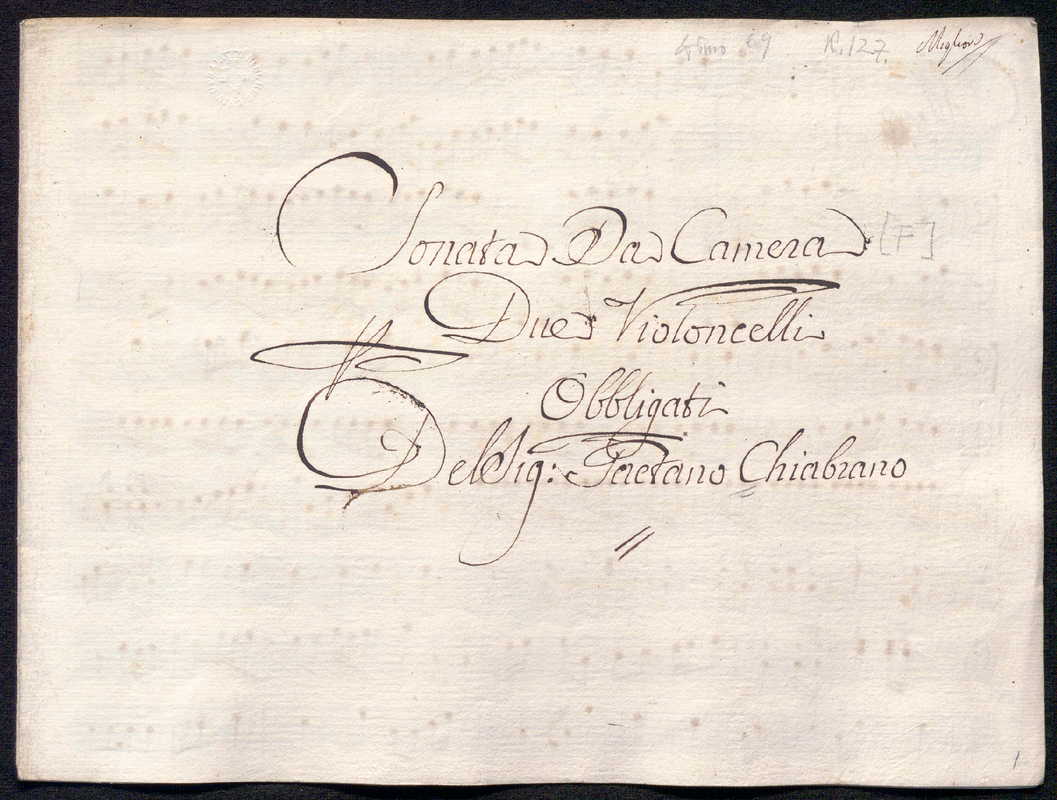 69 R. 127. Migliore
Sonata Da Camera [F]
Due Violoncelli
Obbligati
Del Sig: Gaetano Chiabrano
1